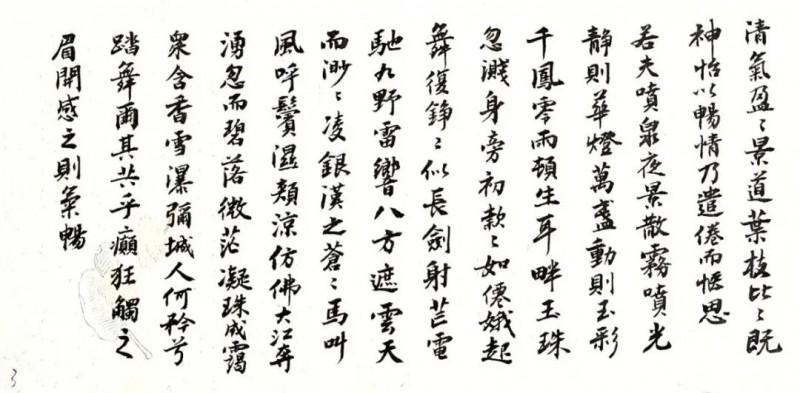 清氣盈〻景道葉枝比〻既
神怡以暢情乃遣倦而愜思
若夫噴泉夜景散霧噴光
靜則華燈萬盞動則玉彩
千鳳零雨頓生耳畔玉珠
忽濺身旁初款〻如僊娥起
舞復錚〻似長劍射芒電
馳九野雷響八方遮雲天
而渺〻凌銀漢之蒼〻馬叫
風呼鬢濕頰涼仿佛大江奔
湧忽而碧落微茫凝珠成靄
衆含香雪瀑彌城人何矜兮
踏舞爾其共乎癲狂觸之
眉開感之則氣暢
3